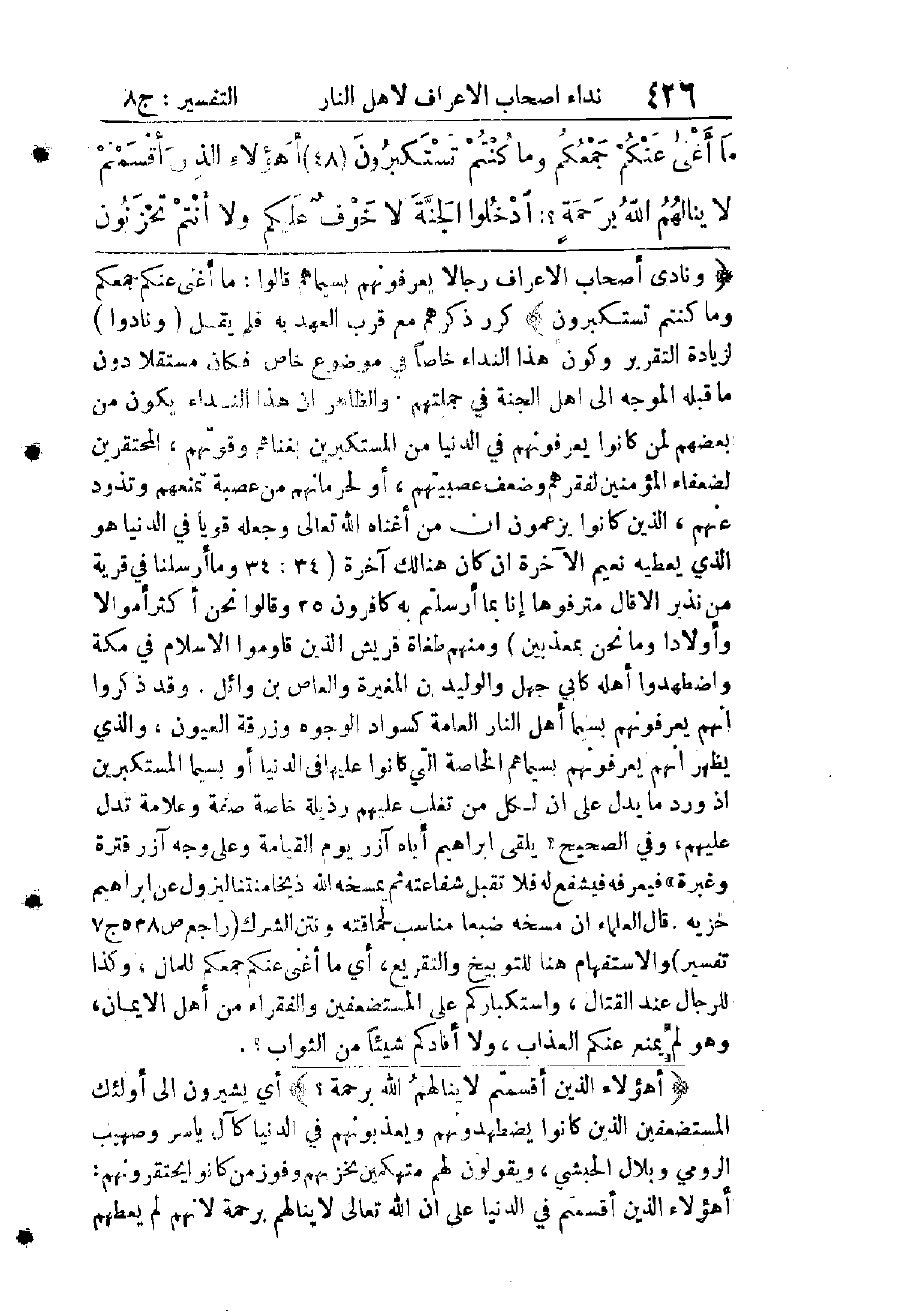 ٤٢٦ نداء اصحاب الاعراف لاهل النار التفسير : ج٨
مَا أَغْنَىٰ عَنْكُمْ جَمْعُكُمْ وما كُنْتُمْ تَسْتَكْبِرُونَ (٤٨) أَهَؤُلاءِ الذينَ أَقْسَمْتُمْ
لا ينالُهُمُ اللهُ بِرَحمَةٍ ؟: اُدْخُلُوا الجنَّةَ لا خَوْفٌ عَلَيكم ولا أَنْتُمْ تَحْزَنُون
﴿ ونادى أصحاب الاعراف رجالا يعرفونهم بسيماهم قالوا : ما أغنى عنكم جمعكم
وما كنتم تستكبرون ﴾ كرر ذكرهم مع قرب العهد به فلم يقل ( ونادوا )
لزيادة التقرير وكون هذا النداء خاصاً في موضوع خاص فكان مستقلا دون
ما قبله الموجه الى اهل الجنة في جملتهم . والظاهر ان هذا النداء يكون من
بعضهم لمن كانوا يعرفونهم في الدنيا من المستكبرين بغناهم وقوتهم ، المحتقرين
لضعفاء المؤمنين لفقرهم وضعف عصبيتهم ، أو لحرمانهم من عصبة تمنعهم وتذود
عنهم ، الذين كانوا يزعمون ان من أغناه الله تعالى وجعله قوياً في الدنيا هو
الذي يعطيه نعيم الآخرة ان كان هنالك آخرة ( ٣٤ : ٣٤ وما أرسلنا في قرية
من نذير الا قال مترفوها إنا بما أرسلتم به كافرون ٣٥ وقالوا نحن أكثر أموالا
وأولادا وما نحن بمعذبين ) ومنهم طغاة قريش الذين قاوموا الاسلام في مكة
واضطهدوا أهله كابي جهل والوليد بن المغيرة والعاص بن وائل . وقد ذكروا
انهم يعرفونهم بسيما أهل النار العامة كسواد الوجوه وزرقة العيون ، والذي
يظهر أنهم يعرفونهم بسيماهم الخاصة التي كانوا عليها في الدنيا أو بسيما المستكبرين
اذ ورد ما يدل على ان لكل من تغلب عليهم رذيلة خاصة صفة وعلامة تدل
عليهم، وفي الصحيح « يلقى ابراهيم أباه آزر يوم القيامة وعلى وجه آزر قترة
وغبرة» فيعرفه فيشفع له فلا تقبل شفاعته ثم يمسخه الله ذيخا منتنا ليزول عن ابراهيم
خزيه . قال العلماء ان مسخه ضبعا مناسب لحماقته ونتن الشرك (راجع ص ٥٣٨ ج٧
تفسير) والاستفهام هنا للتوبيخ والتقريع، أي ما أغنى عنكم جمعكم للمال ، وكذا
للرجال عند القتال ، واستكباركم على المستضعفين والفقراء من أهل الايمان،
وهو لم يمنع عنكم العذاب ، ولا أفادكم شيئاً من الثواب ؟ .
﴿ أهؤلاء الذين أقسمتم لا ينالهمُ الله برحمة ؟ ﴾ أي يشيرون الى أولئك
المستضعفين الذين كانوا يضطهدونهم ويعذبونهم في الدنيا كآل ياسر وصهيب
الرومي وبلال الحبشي ، ويقولون لهم متهكمين بخزيهم وفوز من كانوا يحتقرونهم:
أهؤلاء الذين أقسمتم في الدنيا على ان الله تعالى لا ينالهم برحمة لانهم لم يعطهم